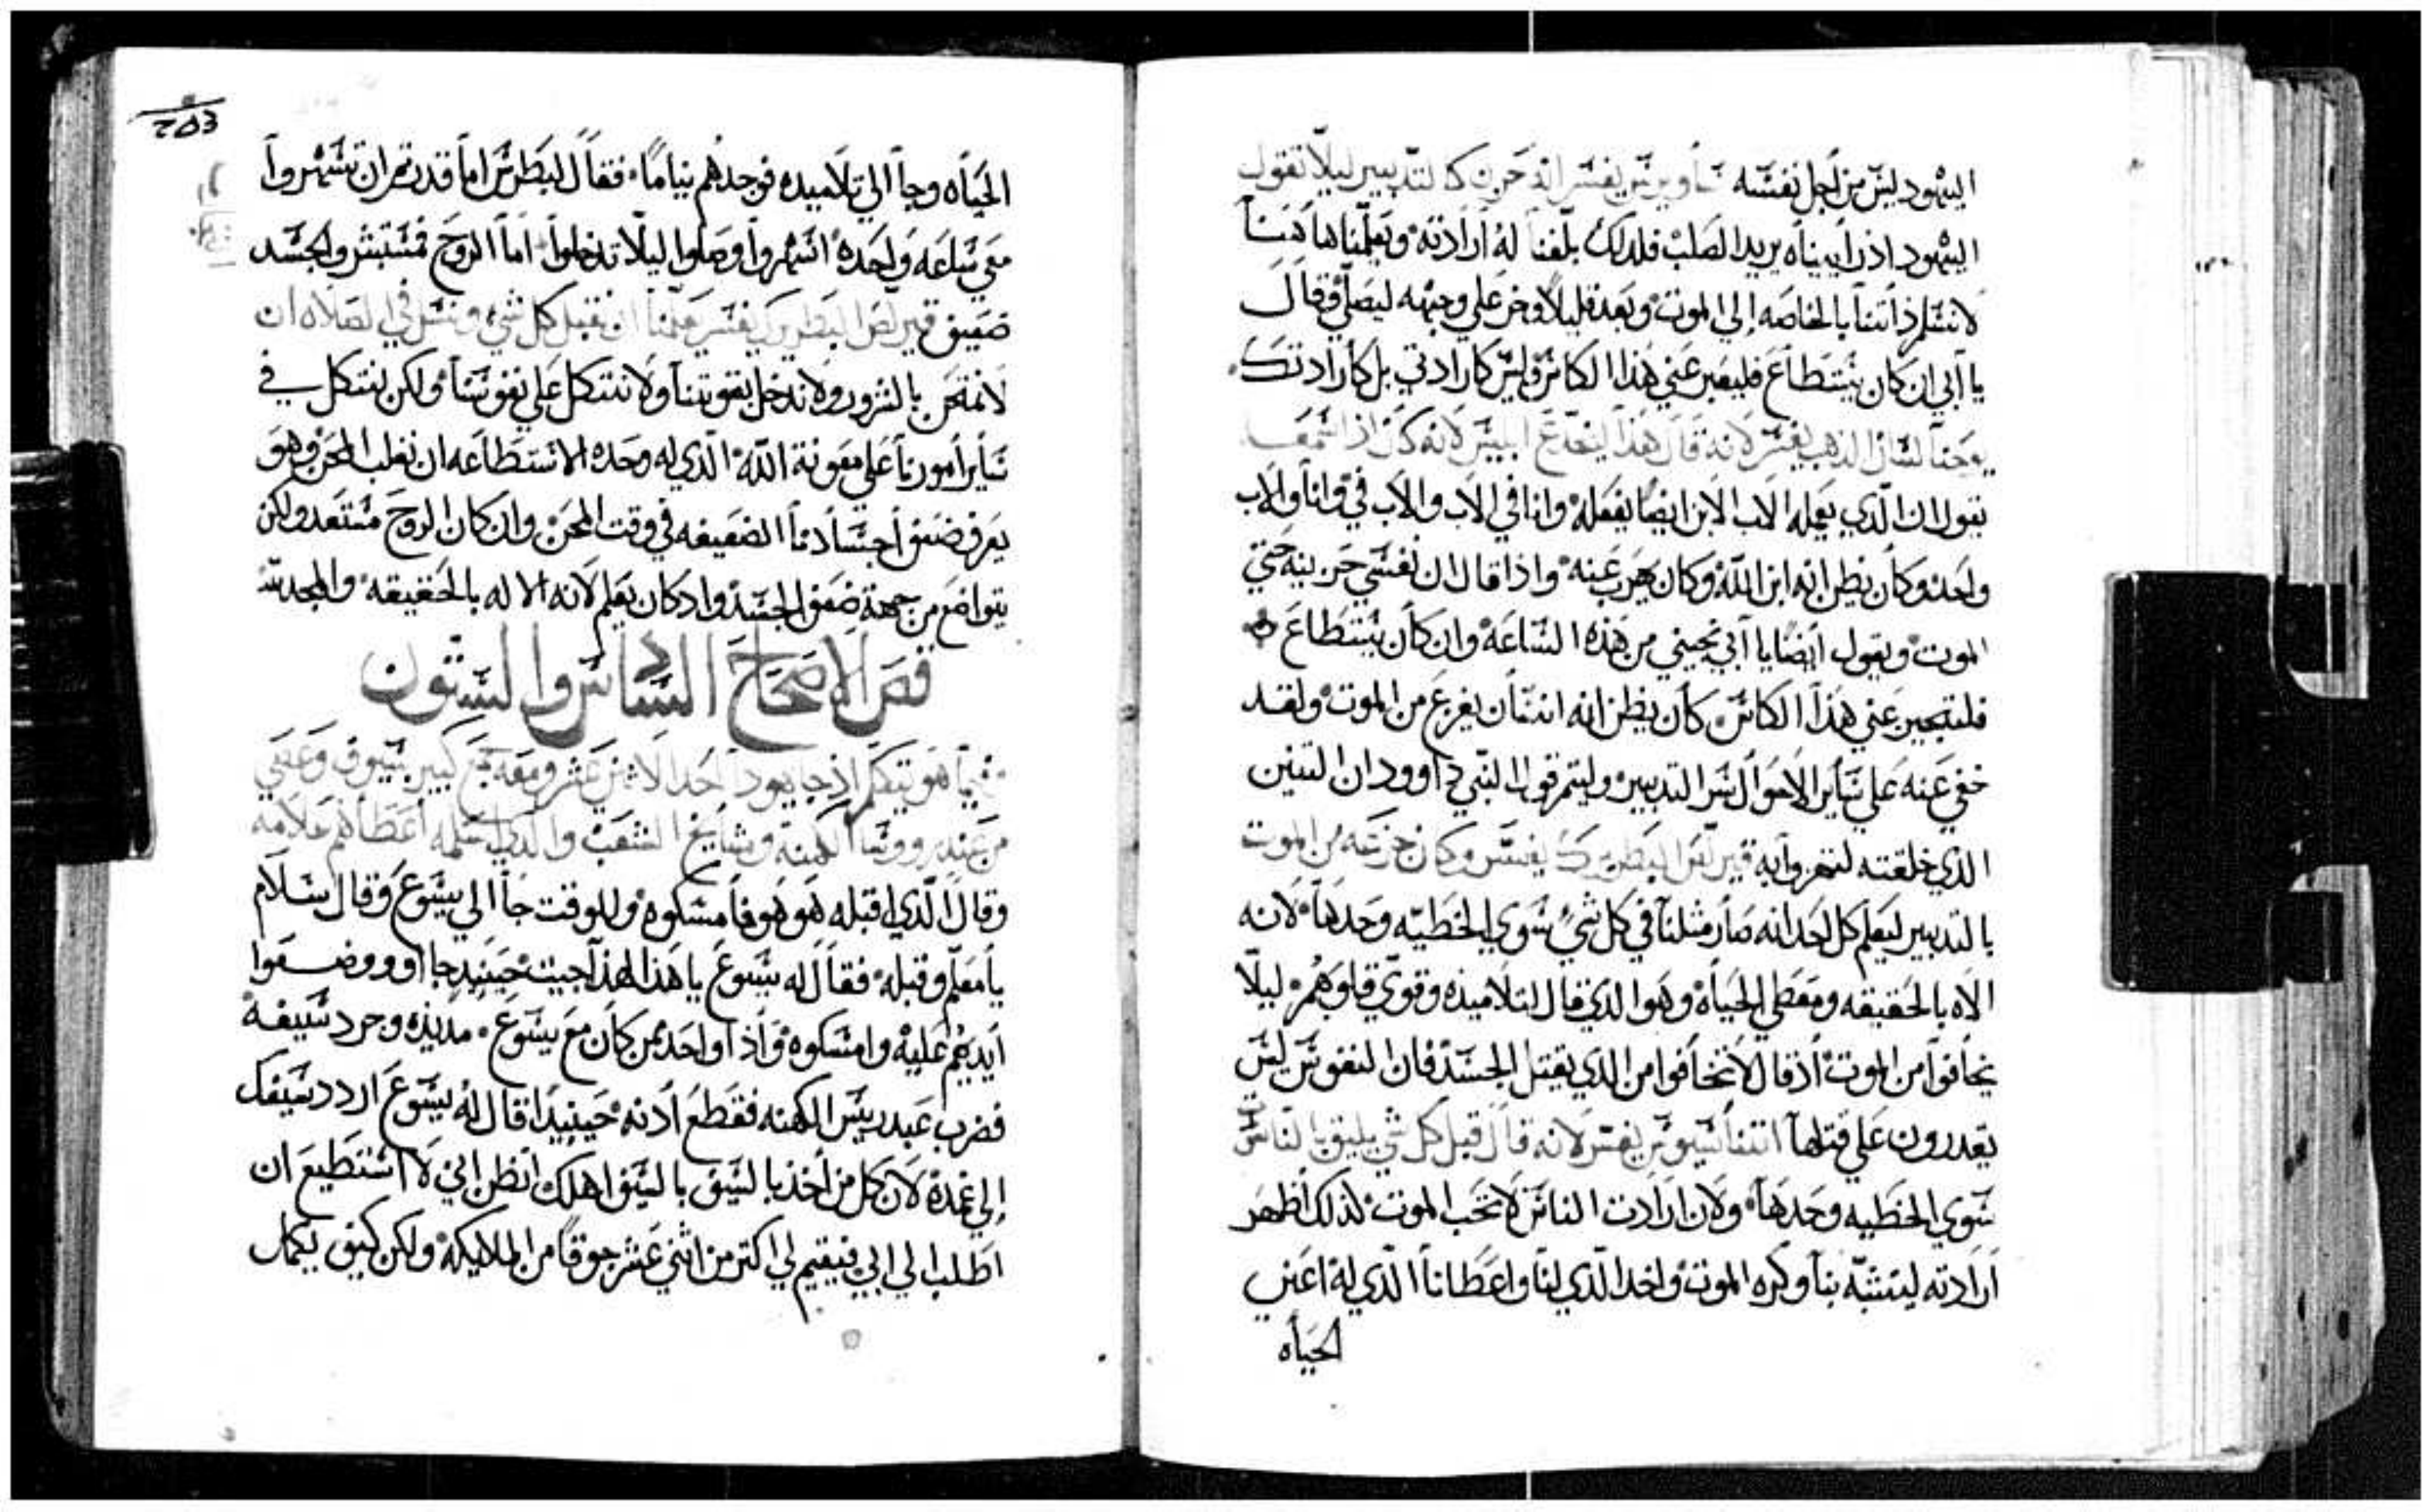 اليهود ليس من اجل نفسه ساويرس يفسر انه حزن كالتدبير ليلا نقول
اليهود اذ رايناه يريد الصلب فلدلك بلغنا له ارادته وتعلمنا هاهنا
لا نسلم ذاتنا بالخاصه الي الموت وبعد قليلا وخر علي وجهه ليصلي وقال
يا ابي ان كان يستطاع فليعبر عني هذا الكاس وليس كارادتي بل كارادتك
يوحنا لسان الذهب يفسر لانه قال هذا ليخدع ابليس لانه كان اذا سمعه
يقول ان الذي يعمله الاب الابن ايضا يفعله وانا في الاب والاب في وانا والاب
واحد وكان يظن انه ابن الله وكان يهرب عنه واذا قال ان نفسي حزينه حتي
الموت ويقول ايضا يا ابي نجيني من هذه الساعه وان كان يستطاع
فليعبر عني هذا الكاس كان يظن انه انسان يفزع من الموت ولقد
خفي عنه علي ساير الاحوال سر التدبير وليتم قول النبي داوود ان التنين
الذي خلقته لتهزوا به قيرلص البطريرك يفسر وكان جزعه من الموت
بالتدبير ليعلم كل احد انه صار مثلنا في كل شي سوي الخطيه وحدها لانه
الاه بالحقيقه ومعطي الحياه وهوا الذي قال لتلاميذه وقوي قلوبهم ليلا
يخافوا من الموت اذ قال لا تخافوا من الذي يقتل الجسد فان النفوس ليس
يقدرون علي قتلها اتناسيوس يفسر لانه قال قبل كل شي يليق بالناس
سوي الخطيه وحدها ولان ارادت الناس لا تحب الموت لذلك اظهر
ارادته ليتشبه بنا وكره الموت واخد الذي لنا واعطانا الذي له اعني
الحياه
253
الحياه وجا الي تلاميده فوجدهم نياما فقال لبطرس اما قدرتم ان تسهروا
معي ساعه واحده اسهروا وصلوا ليلا تدخلوا اما الروح فمستبشر والجسد
ضعيف قيرلص البطريرك يفسر يعلمنا ان نقبل كل شي ونسل في الصلاه ان
لا نمتحن بالشرور ولا ندخل بقوتنا ولا نتكل علي نفوسنا ولكن نتكل في
ساير امورنا علي معونة الله الذي له وحده الاستطاعه ان نغلب المحن وهو
يعرف ضعف اجسادنا الضعيفه في وقت المحن وان كان الروح مستعد ولكن
يتواضع من جهة ضعف الجسد واد كان يعلم لانه الاله بالحقيقه والمجد
فص الاصحاح السادس والستون
فيما هو يتكلم اذ جا يهودا احد الاثني عشر ومعه جمع كبير بسيوف وعصي
من عند رووسا الكهنه ومشايخ الشعب والذي اسلمه اعطاهم علامه
وقال الذي اقبله هو هو فامسكوه وللوقت جا الي يسوع وقال سلام
يا معلم وقبله فقال له يسوع يا هذا لهذا جيت حينيد جااوو وضعوا
ايديهم عليه وامسكوه واذا واحد ممن كان مع يسوع مد يده وجرد سيفه
فضرب عبد رييس الكهنه فقطع ادنه حينيدا قال له يسوع اردد سيفك
الي غمدة لان كل من اخذ بالسيف بالسيف اهلك اتظن اني لا استطيع ان
اطلب الي ابي فيقيم لي اكتر من اثني عشر جوقا من الملايكه ولكن كيف يكمل